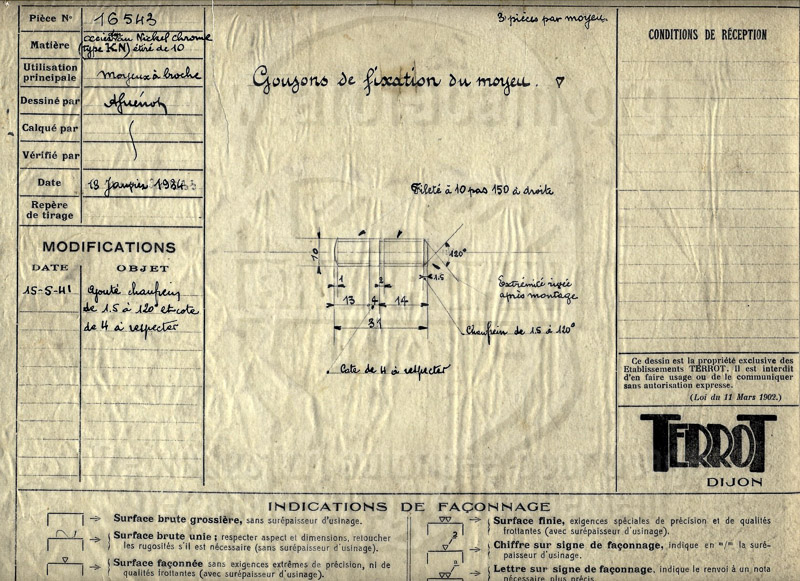 Pièce Nº 16543
3 pièces par moyeu.
Matière acier au Nickel chrome
(type KN) étiré de 10
Utilisation
principale moyeux à broche
Dessiné par
Calqué par
Vérifié par
Date 18 Janvier
Repère
de tirage
Goujons de fixation du moyeu. ▽
CONDITIONS DE RÉCEPTION
MODIFICATIONS
DATE OBJET
15-5-41 Ajouté chanfrein
de 1.5 à 120° et cote
de 4 à respecter
Fileté à 10 pas 150 à droite
10
120°
1 2 1.5
13 4 14
31
Extrémité rivée
après montage
Chanfrein de 1.5 à 120°
Cote de 4 à respecter
Ce dessin est la propriété exclusive des
Etablissements TERROT. Il est interdit
d'en faire usage ou de le communiquer
sans autorisation expresse.
(Loi du 11 Mars 1902.)
TERROT
DIJON
INDICATIONS DE FAÇONNAGE
Surface brute grossière, sans surépaisseur d'usinage.
Surface brute unie ; respecter aspect et dimensions, retoucher
les rugosités s'il est nécessaire (sans surépaisseur d'usinage).
Surface façonnée sans exigences extrêmes de précision, ni de
qualités frottantes (avec surépaisseur d'usinage).
Surface finie, exigences spéciales de précision et de qualités
frottantes (avec surépaisseur d'usinage).
Chiffre sur signe de façonnage, indique en m/m la suré-
paisseur d'usinage.
Lettre sur signe de façonnage, indique le renvoi à un nota
nécessaire plus précis.